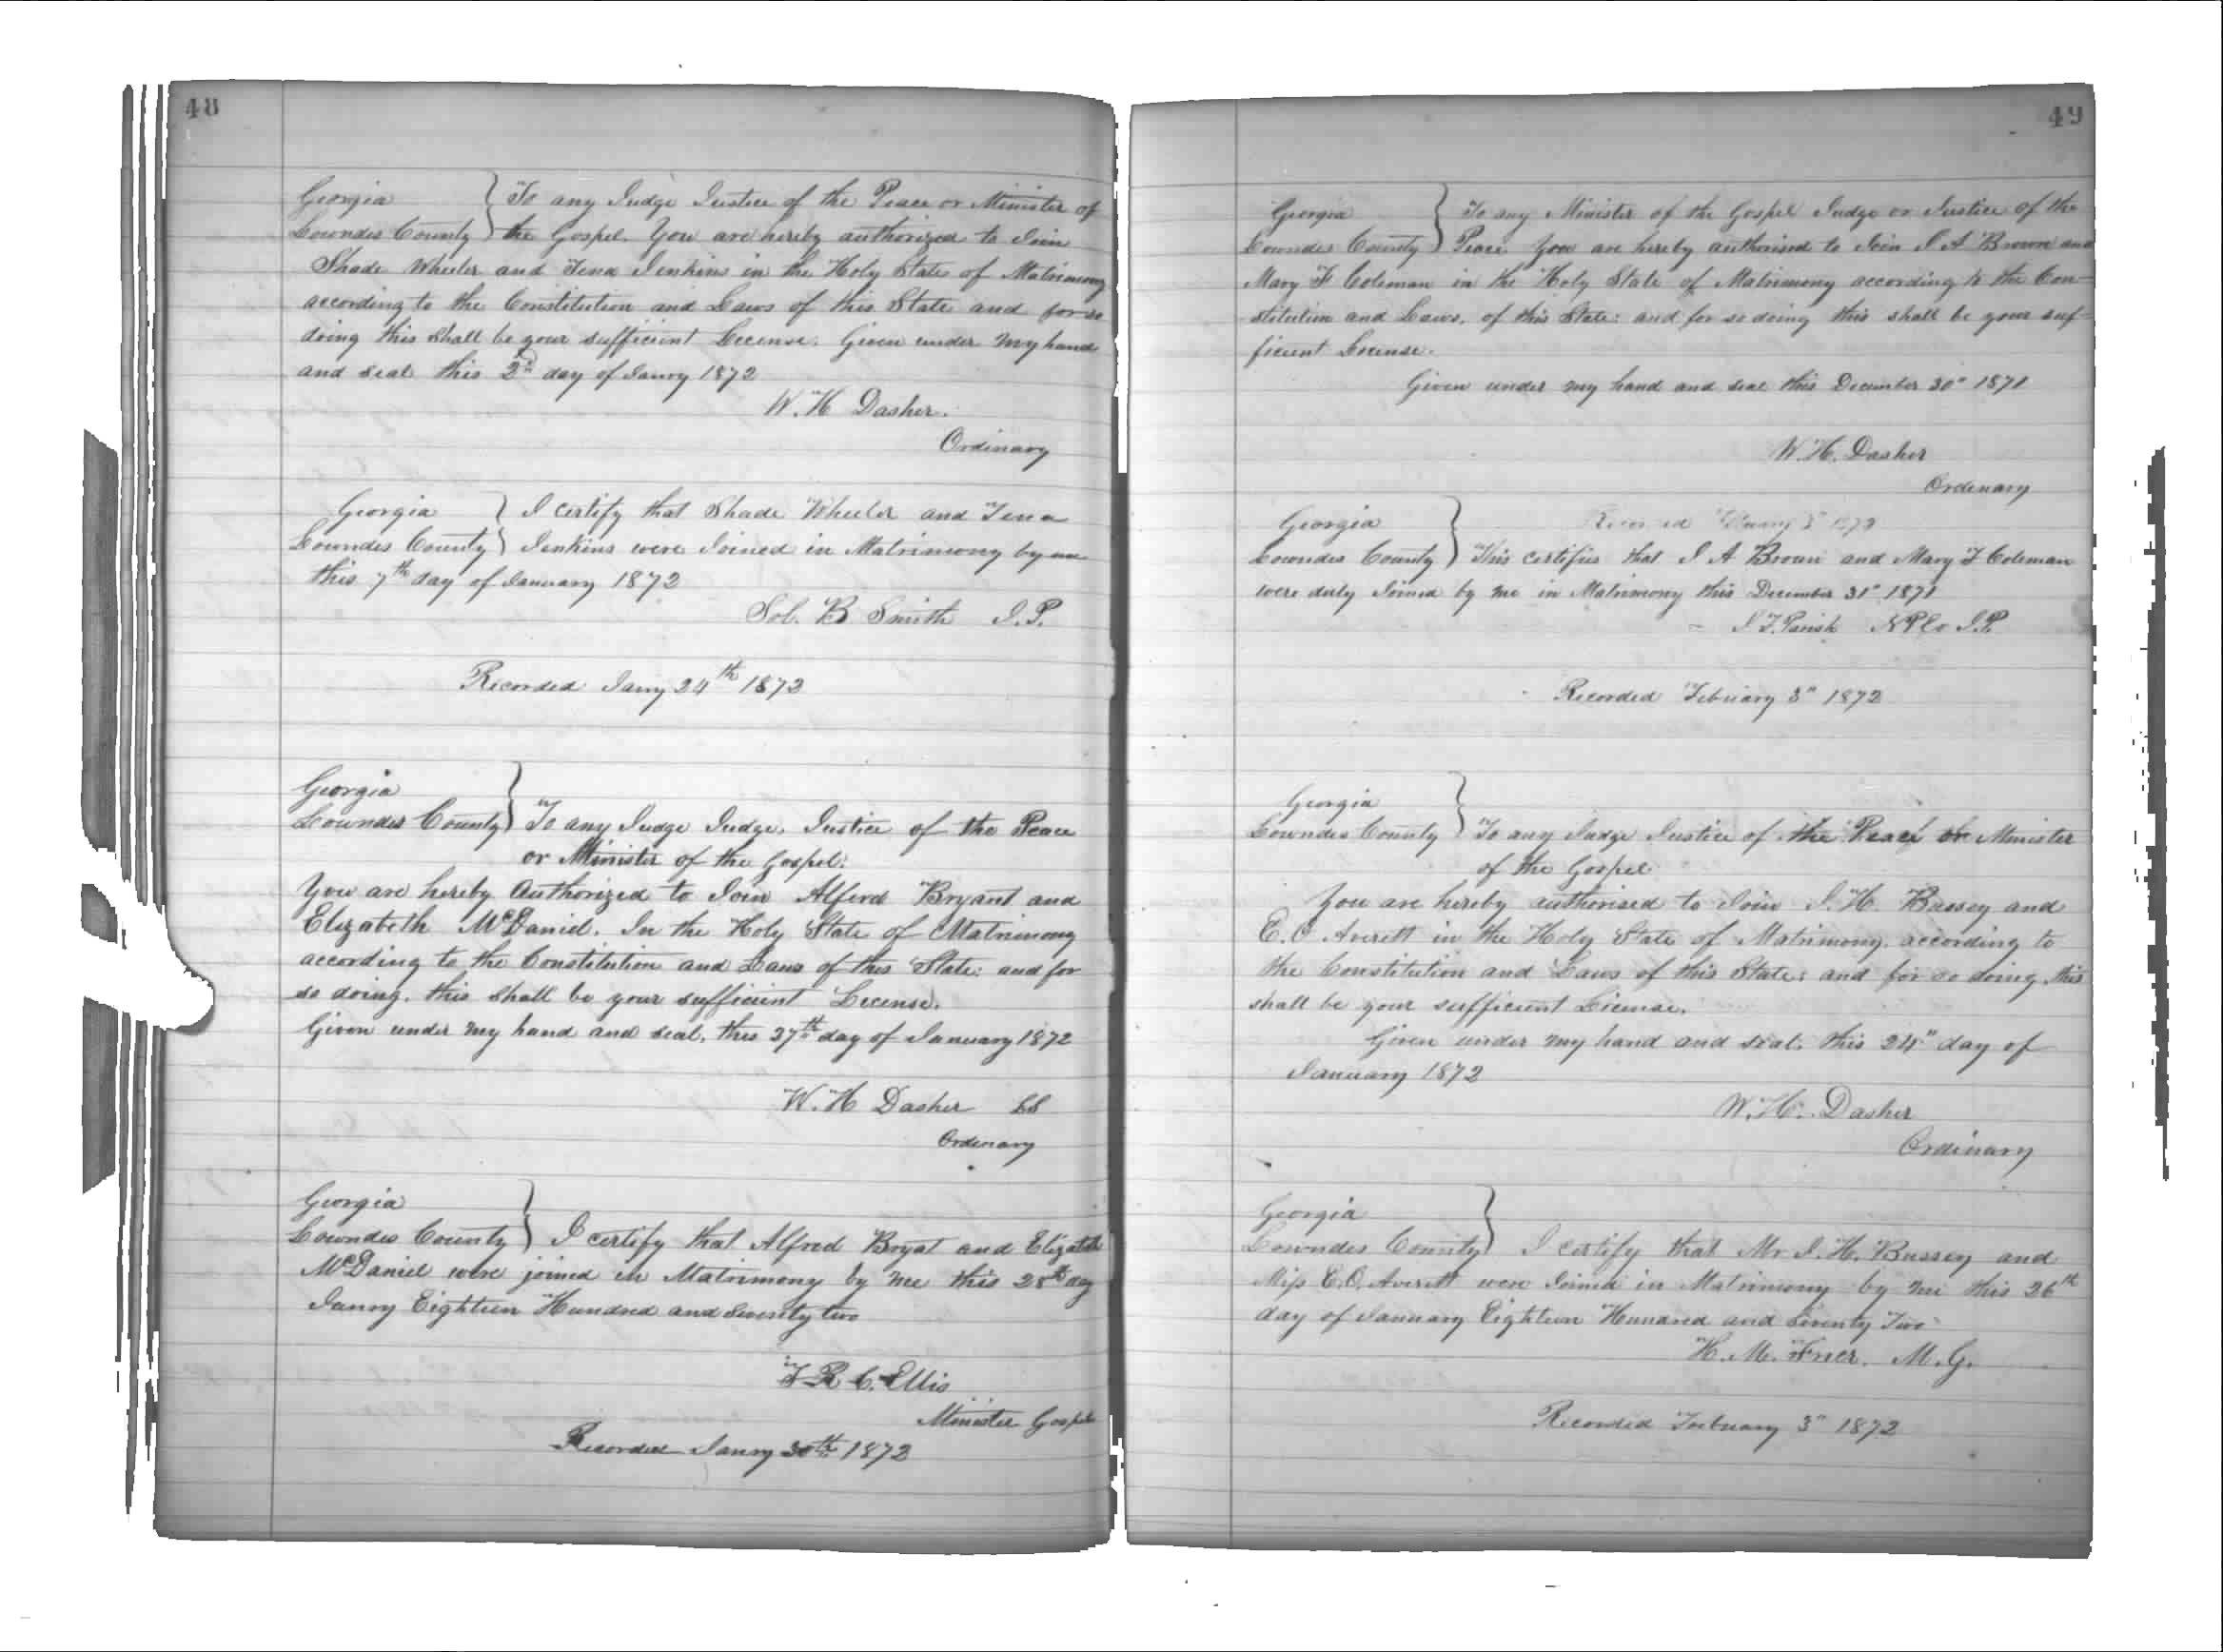 48
Georgia } To any Judge Justice of the Peace or Minister of
Lowndes County } the Gospel. You are hereby authorized to Join
Shade Wheeler and Tena Jenkins in the Holy State of Matrimony
according to the Constitution and Laws of this State and for so
doing this shall be your sufficient Lecense. Given under my hand
and seal this 2nd day of Janry 1872
W. H Dasher.
Ordinary
Georgia } I certify that Shade Wheeler and Tena
Lowndes County } Jenkins were Joined in Matrimony by me
this 7th day of January 1872
Sol. B Smith J.P.
Recorded Jany 24th 1872
Georgia }
Lowndes County } To any Judge Judge, Justice of the Peace
or Minister of the Gospel.
You are hereby Authorized to Join Alferd Bryant and
Elizabeth McDaniel. In the Holy State of Matrimony
according to the Constitution and Laws of this State: and for
so doing, this shall be your sufficient Lecense.
Given under my hand and seal, this 27th day of January 1872
W. H Dasher LS
Ordinary
Georgia }
Lowndes County } I certify that Alfred Bryat and Elizabeth
McDaniel were joined in Matrimony by me this 28th day
Janry Eighteen Hundred and Seventy two
T R C. Ellis
Minister Gospel
Recorded Janry 30th 1872
49
Georgia } To any Minister of the Gospel Judge or Justice of the
Lowndes County } Peace You are hereby authorised to Join J A Brown and
Mary F Coleman in the Holy State of Matrimony according to the Con-
stitution and Laws, of this State: and for so doing this shall be your suf-
ficient License.
Given under my hand and seal this December 30" 1871
W. H. Dasher
Ordinary
Georgia }
Lowndes County } This certifies that J A Brown and Mary F Coleman
were duly Joined by me in Matrimony this December 31" 1871
J. T. Parish NP Ex J.P.
Recorded February 3" 1872
Georgia }
Lowndes County } To any Judge Justice of the Peace or Minister
of the Gospel
You are hereby authorised to Join J. H. Bussey and
E. O Averett in the Holy State of Matrimony, according to
the Constitution and Laws of this State: and for so doing this
shall be your sufficient License.
Given under my hand and seal. this 24" day of
January 1872
W. H. Dasher
Ordinary
Georgia }
Lowndes County } I certify that Mr J. H. Bussey and
Miss E. O. Averett were Joined in Matrimony by me this 26th
day of January Eighteen Hundred and Seventy Two
H. M. Frier. M. G.
Recorded Febuary 3" 1872